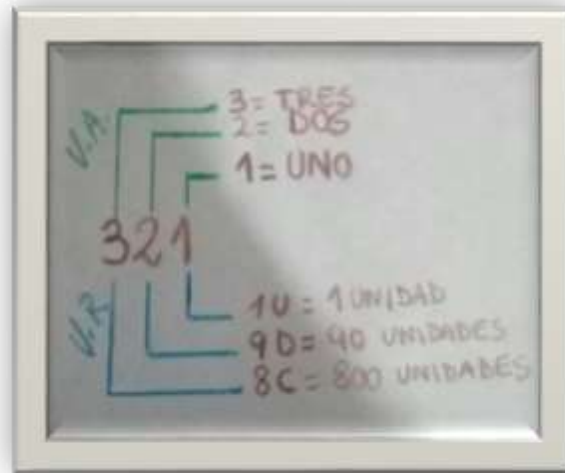 V.A.
3= TRES
2= DOS
1= UNO
321
V.R.
1U = 1 UNIDAD
9D = 90 UNIDADES
8C = 800 UNIDADES